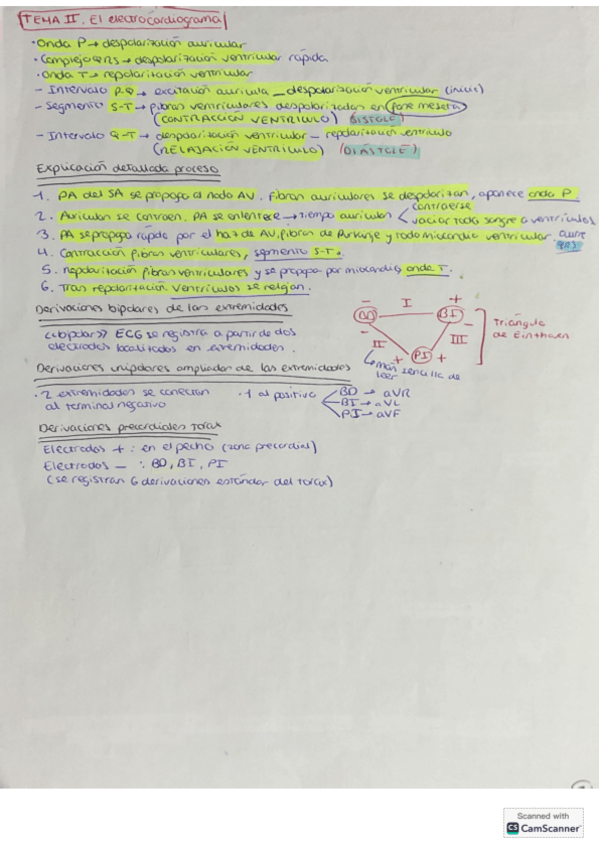 TEMA II. El electrocardiograma
· Onda P → despolarización auricular
· Complejo QRS → despolarización ventricular rápida.
· Onda T → repolarización ventricular
- Intervalo P-Q → excitación auricula _ despolarización ventricular (inicio)
- Segmento S-T → fibras ventriculares despolarizadas en fase meseta
(CONTRACCIÓN VENTRÍCULO) (SÍSTOLE)
- Intervalo Q-T → despolarización ventricular - repolarización ventrículo
(RELAJACIÓN VENTRÍCULO) (DIÁSTOLE)
Explicación detallada proceso
1. PA del SA se propaga al nodo AV. Fibras auriculares se despolarizan, aparece onda P.
2. Aurículas se contraen. PA se enlentece → tiempo aurículas < contraerse
vaciar toda sangre a ventrículos
3. PA se propaga rápido por el haz de AV, fibras de Purkinje y todo miocardio ventricular
QRS
4. Contracción fibras ventriculares, segmento S-T.
5. repolarización fibras ventriculares y se propaga por miocardio, onda T.
6. Tras repolarización ventrículos se relajan.
Derivaciones bipolares de las extremidades
<<bipolar>> ECG se registra a partir de dos
electrodos localizados en extremidades.
- I +
BD BI
- II III -
+ PI +
Triángulo
de Einthoven
más sencilla de
leer
Derivaciones unipolares ampliadas de las extremidades
· 2 extremidades se conectan
al terminal negativo
· 1 al positivo
BD → aVR
BI → aVL
PI → aVF
Derivaciones precordiales torax
Electrodos + : en el pecho (zona precordial)
Electrodos - : BD, BI, PI
(se registran 6 derivaciones estándar del torax)
Scanned with
CS CamScanner